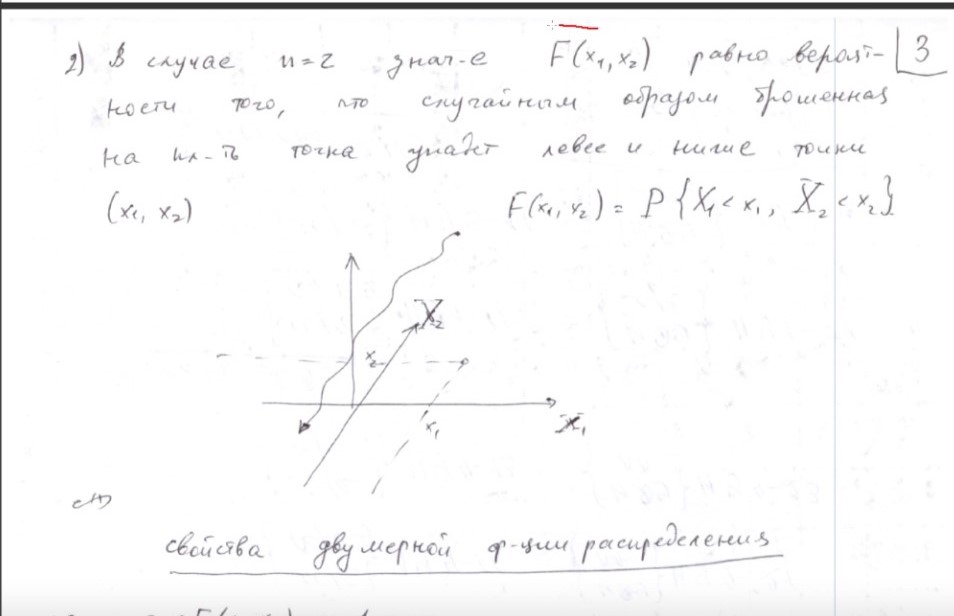 2) В случае n=2 знач-е F(x₁,x₂) равно вероят- 3
ности того, что случайным образом брошенная
на пл-ть точка упадет левее и ниже точки
(x₁, x₂) F(x₁, x₂) = P{X₁ < x₁, X₂ < x₂}
X₂
x₂
x₁
X₁
свойства двумерной ф-ции распределения